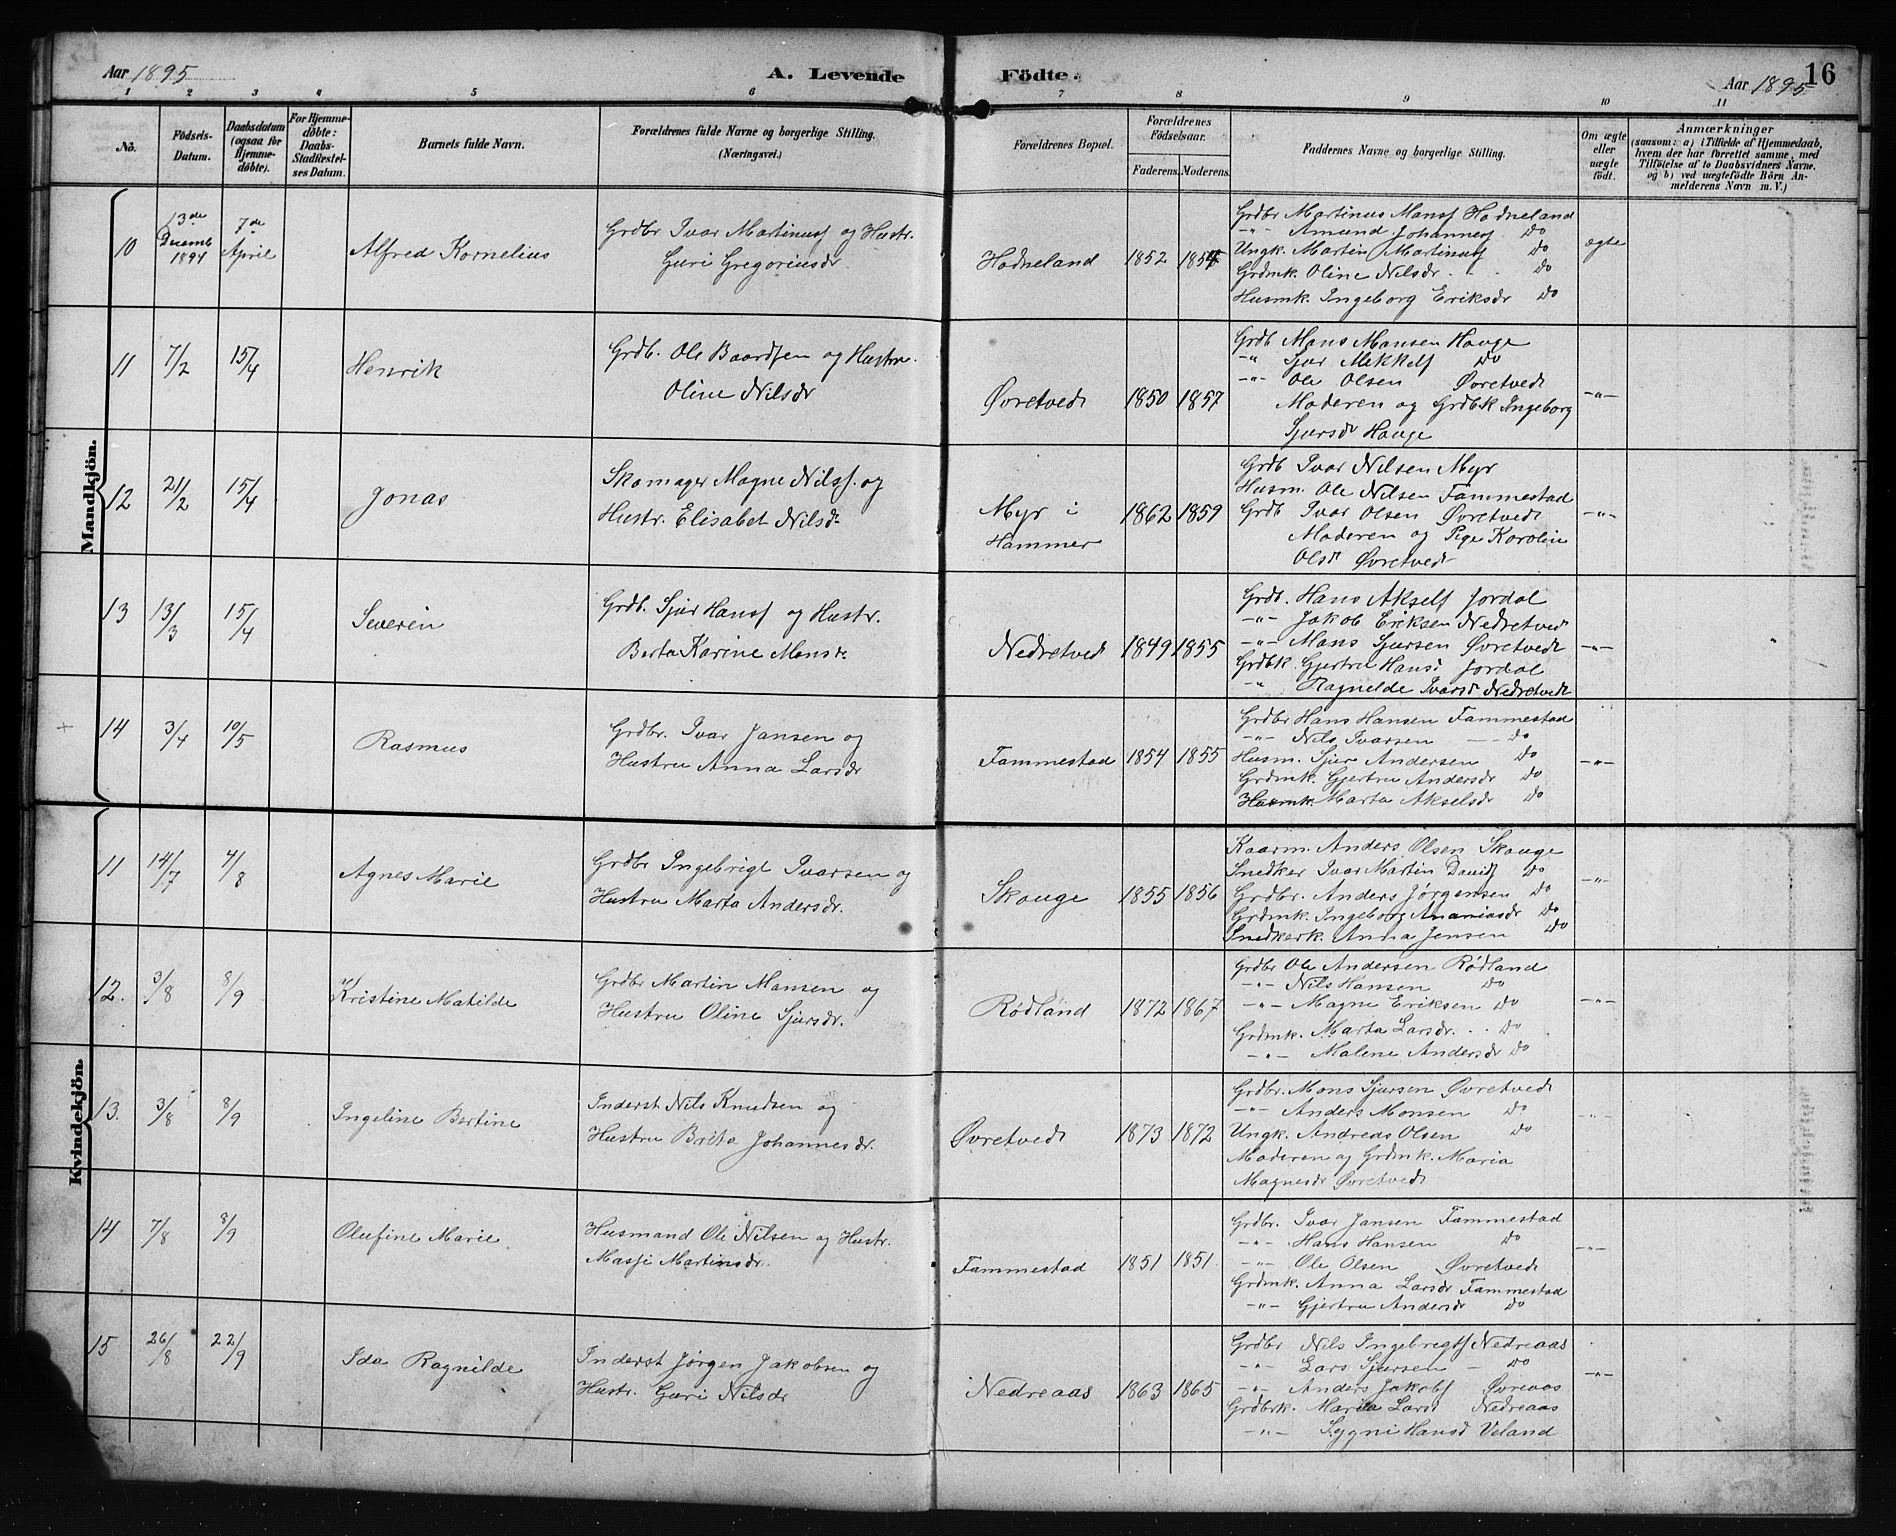 Aar 1895
A. Levende Födte.
Aar 1895
16
1 2 3 4 5 6 7 8 9 10 11
No.
Födsels-Datum.
Daabsdatum (ogsaa for Hjemmedöbte).
For Hjemmedöbte: Daabs-Stadfestelses Datum.
Barnets fulde Navn.
Forældrenes fulde Navne og borgerlige Stilling. (Næringsvei.)
Forældrenes Bopæl.
Forældrenes Födselsaar.
Faderens. Moderens.
Faddernes Navne og borgerlige Stilling.
Om ægte eller uægte födt.
Anmærkninger
(saasom: a) i Tilfælde af Hjemmedaab, hvem der har forrettet samme, med Tilföielse af to Daabsvidners Navne, og b) ved uægtefödte Börn Anmelderens Navn m. V.)
Mandkjön.
10 13de Decemb 1894 7de April Alfred Kornelius
Grdbr Ivar Martinuss og Hustr.
Guri Gregoriusdr
Hodneland 1852 1854
Grdbr Martinus Monss Hodneland
-"- Amund Johanness Do
Ungk. Martin Martinuss Do
Grdmk. Oline Nilsdr Do
Husmk. Ingeborg Eriksdr Do
ægte
11 7/2 15/4 Henrik
Grdb. Ole Baardsen og Hustru
Oline Nilsdr
Øvretvedt 1850 1857
Grdb Mons Monsen Hauge
-"- Sjur Mikkels Do
-"- Ole Olsen Øvretvedt
Moderen og Grdbk Ingeborg
Sjursdr Hauge
-"-
12 21/2 15/4 Jonas
Skomager Magne Nilss. og
Hustr. Elisabet Nilsdr
Myr i Hammer 1862 1859
Grdb Ivar Nilsen Myr
Husm. Ole Nilsen Fammestad
Grdb Ivar Olsen Øvretvedt
Moderen og Pige Karolin
Olsdr Øvretvedt
-"-
13 13/3 15/4 Severin
Grdb. Sjur Hanss og Hustr.
Berta Karine Monsdr
Nedretved 1849 1855
Grdb. Hans Akself Jordal
-"- Jakob Eriksen Nedretved
-"- Mons Sjursen Øvretvedt
Grdbk. Gjertru Hansd Jordal
-"- Ragnilde Ivarsd Nedretvedt
-"-
14 3/4 10/5 Rasmus
Grdbr. Ivar Jansen og
Hustru Anna Larsdr
Fammestad 1854 1855
Grdbr Hans Hansen Fammestad
-"- Nils Ivarsen Do
Husm. Sjur Andersen Do
Grdmk. Gjertru Andersdr Do
Husmk. Marta Akselsdr Do
-"-
Kvindekjön.
11 14/7 4/8 Agnes Marie
Grdbr Ingebrigt Ivarsen og
Hustru Marta Andersdr.
Skauge 1855 1856
Kaarm. Anders Olsen Skauge
Snedker Ivar Martin Davids Do
Grdbr. Anders Jørgensen Do
Grdmk. Ingeborg Ananiasdr Do
Snedkerk. Anna Jensen Do
-"-
12. 3/8 8/9 Kristine Matilde
Grdbr Martin Monsen og
Hustru Oline Sjursdr.
Rødland 1872 1867
Grdbr Ole Andersen Rødland
-"- Nils Hansen Do
-"- Magne Eriksen Do
Grdmk. Marta Larsdr. Do
-"- Malene Andersdr Do
-"-
13. 3/8 8/9 Ingeline Bertine
Inderst Nils Knudsen og
Hustru Brita Johannesdr.
Øvretvedt 1873 1872
Grdbr. Mons Sjursen Øvretvedt
-"- Anders Monsen Do
Ungk. Andreas Olsen Do
Moderen og Grdmk. Maria
Magnesdr Øvretvedt
-"-
14 7/8 8/9 Olufine Marie
Husmand Ole Nilsen og Hustr.
Masji Martinsdr.
Fammestad 1851 1851.
Grdbr. Ivar Jansen Fammestad
-"- Hans Hansen Do
-"- Ole Olsen Øvretvedt
Grdmk. Anna Larsdr Fammestad
-"- Gjertru Andersdr Do
-"-
15 26/8 22/9 Ida Ragnilde
Inderst Jørgen Jakobsen og
Hustr. Guri Nilsdr
Nedreaas 1863 1865
Grdbr Nils Ingebrigts Nedreaas
-"- Lars Sjursen Do
-"- Anders Jakobs Øvreaas
Grdbrk. Maria Larsd Nedreaas
-"- Sygni Hansd Veland
-"-